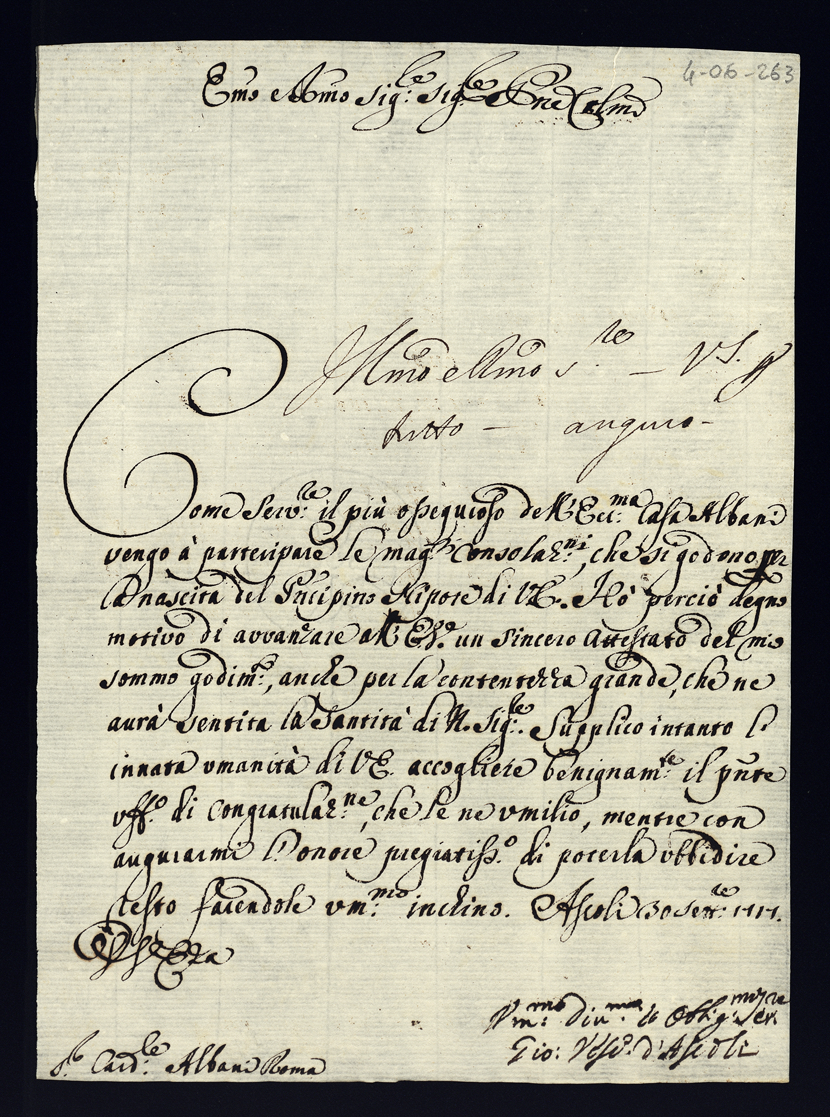 4-06-263
Emo e Rmo Sig:re Sig:re e Pne Colmo
Illmo e Rmo s.re — VS.
tutto — auguro —
Come Serv:re il più ossequioso dell'Ecc:ma Casa Albani
vengo à partecipare le mag:ri consolaz:ni, che si godono per
la nascita del Prēcipino Nipote di VE. Hò perciò degno
motivo di avvanzare all'E.V. un sincero attestato del mio
sommo godim:to, anche per la contentezza grande, che ne
aurà sentita la Santità di N. Sig:re. Supplico intanto l'
innata umanità di VE. accogliere benignam:te il pñte
uff:o di congratulaz:ne, che le ne umilio, mentre con
augurarmi l'onore pregiatiss:o di poterla ubbidire
resto facendole um:mo inchino. Ascoli 30 Sett:re
Vm:mo Div:mo et Obblig:mo Ser:re
Gio: Vesc:o d'Ascoli
S.r Card:le Albani Roma